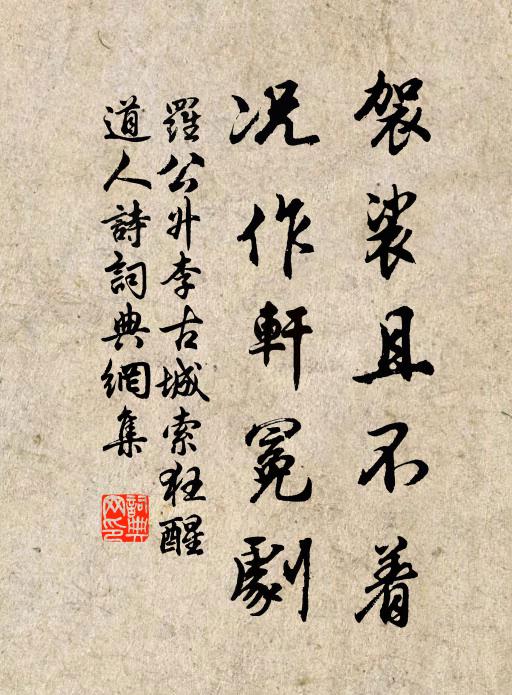 袈裟且不着
况作軒冕劇
羅公升李古城索狂醒
道人詩詞典網集
詞典網印